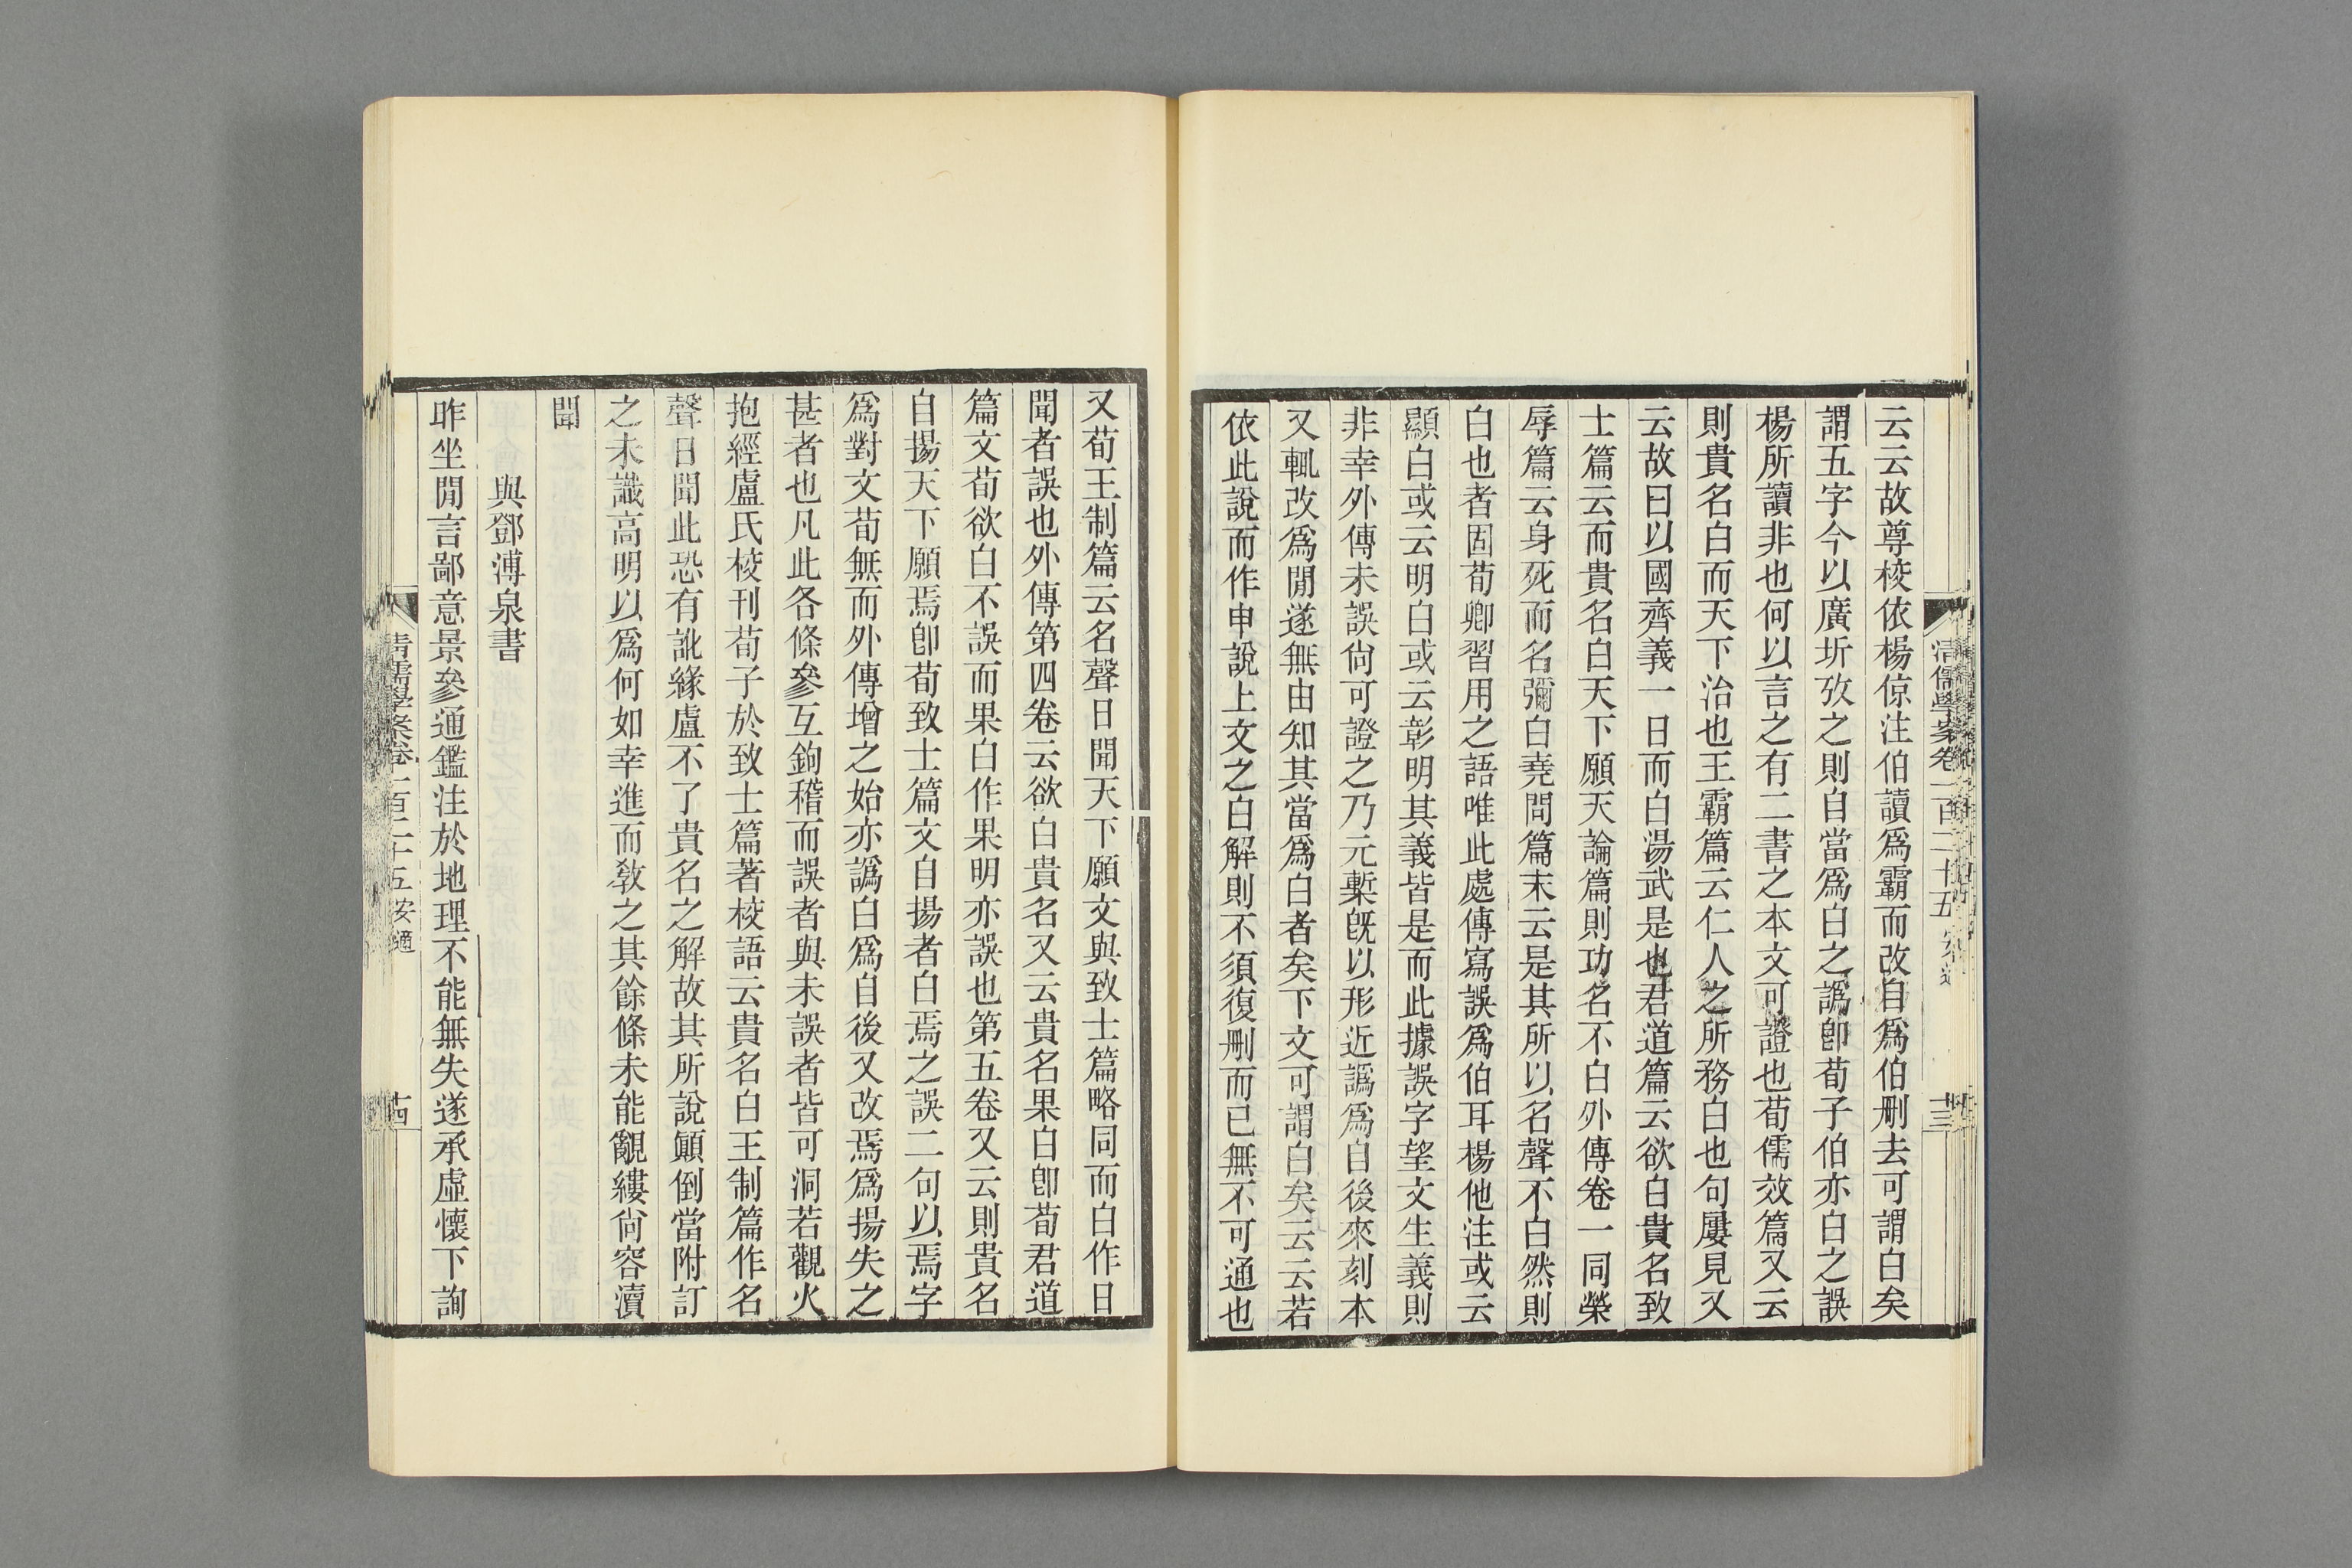 云云故尊校依楊倞注伯讀爲霸而改自爲伯刪去可謂白矣
謂五字今以廣圻攷之則自當爲白之譌卽荀子伯亦白之誤
楊所讀非也何以言之有二書之本文可證也荀儒效篇又云
則貴名白而天下治也王霸篇云仁人之所務白也句屢見又
云故曰以國齊義一日而白湯武是也君道篇云欲白貴名致
士篇云而貴名白天下願天論篇則功名不白外傳卷一同榮
辱篇云身死而名彌白堯問篇末云是其所以名聲不白然則
白也者固荀卿習用之語唯此處傳寫誤爲伯耳楊他注或云
顯白或云明白或云彰明其義皆是而此據誤字望文生義則
非幸外傳未誤尙可證之乃元槧旣以形近譌爲自後來刻本
又輒改爲閒遂無由知其當爲白者矣下文可謂白矣云云若
依此說而作申說上文之白解則不須復刪而已無不可通也
清儒學案卷一百二十五
十三
又荀王制篇云名聲日聞天下願文與致士篇略同而白作日
聞者誤也外傳第四卷云欲白貴名又云貴名果白卽荀君道
篇文荀欲白不誤而果白作果明亦誤也第五卷又云則貴名
自揚天下願焉卽荀致士篇文自揚者白焉之誤二句以焉字
爲對文荀無而外傳增之始亦譌白爲自後又改焉爲揚失之
甚者也凡此各條參互鉤稽而誤者與未誤者皆可洞若觀火
抱經盧氏校刊荀子於致士篇著校語云貴名白王制篇作名
聲日聞此恐有訛緣盧不了貴名之解故其所說顚倒當附訂
之未識高明以爲何如幸進而敎之其餘條未能覼縷尙容瀆
聞
與鄧溥泉書
昨坐閒言鄙意景參通鑑注於地理不能無失遂承虛懷下詢
清儒學案卷一百二十五 安 適
十四